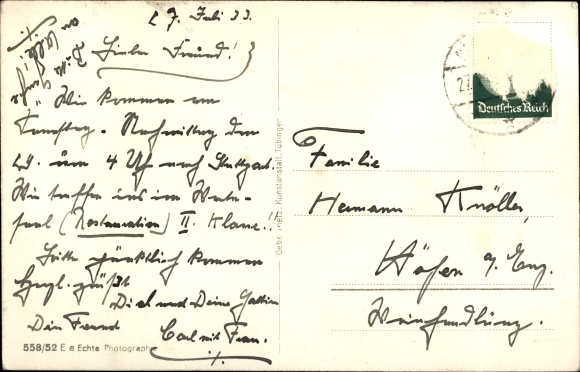 27. Juli 33.
Lieber Freund!
Wir kommen am
Samstag - Nachmittag den
29. um 4 Uhr nach Stuttgart.
Wir treffen uns im Warte-
saal (Restauration) II. Klasse!
Bitte pünktlich kommen
Dich und Deine Gattin
Dein Freund
Carl mit Frau.
558/52 E e Echte Photographie
Gebr. Metz, Kunstanstalt, Tübingen
Deutsches Reich
Familie
Hermann Knöller,
Höfen a/ Enz.
Weinhandlung.